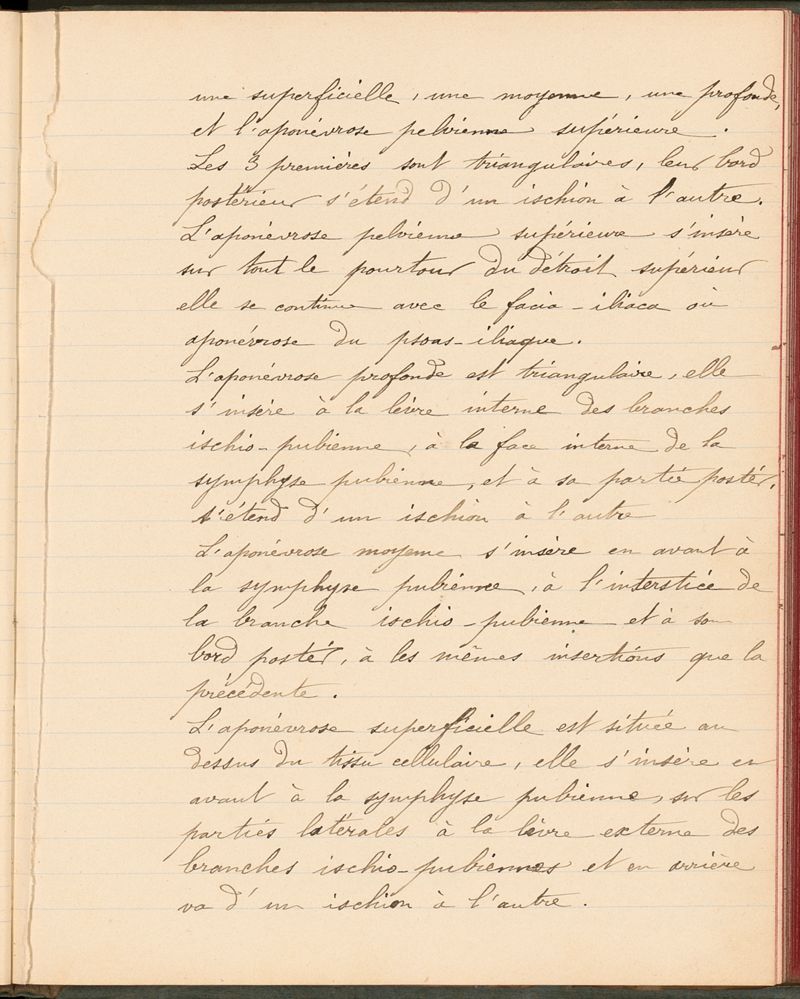 une superficielle, une moyenne, une profonde,
et l'aponévrose pelvienne supérieure.
Les 3 premières sont triangulaires, leur bord
postérieur s'étend d'un ischion à l'autre.
L'aponévrose pelvienne supérieure s'insère
sur tout le pourtour du détroit supérieur
elle se continue avec le facia-iliaca où
aponévrose du psoas-iliaque.
L'aponévrose profonde est triangulaire, elle
s'insère à la lèvre interne des branches
ischio-pubienne, à la face interne de la
symphyse pubienne, et à sa partie postér.
s'étend d'un ischion à l'autre
L'aponévrose moyenne s'insère en avant à
la symphyse pubienne, à l'interstice de
la branche ischio-pubienne et à son
bord postér, à les mêmes insertions que la
précédente.
L'aponévrose superficielle est située au
dessus du tissu cellulaire, elle s'insère en
avant à la symphyse pubienne, sur les
parties latérales à la lèvre externe des
branches ischio-pubiennes et en arrière
va d'un ischion à l'autre.